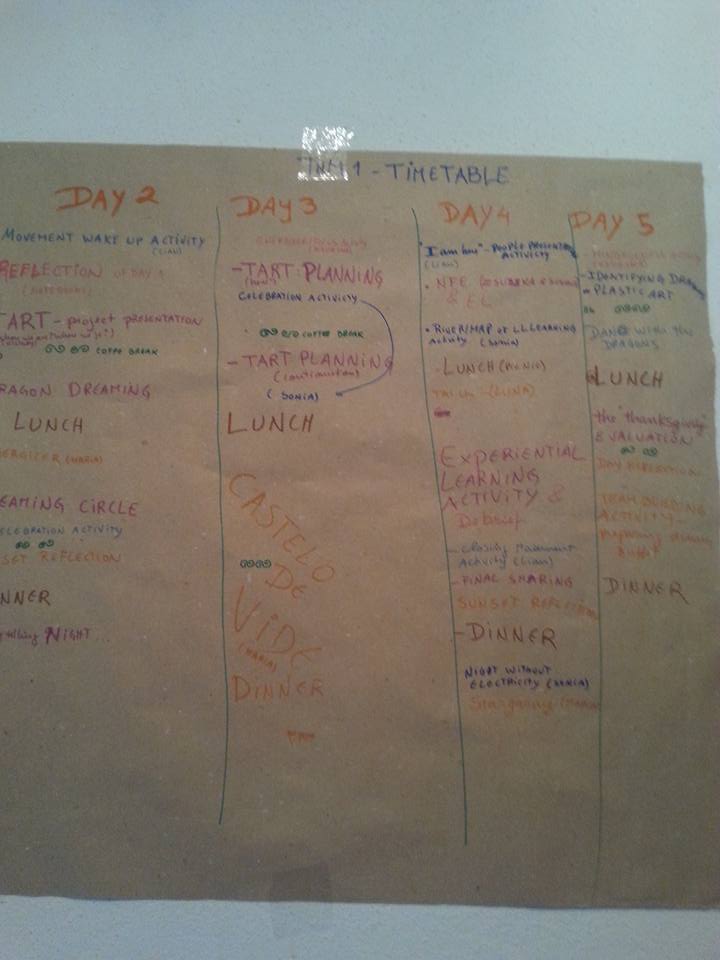 1 - TIMETABLE
DAY 2
MOVEMENT WAKE UP ACTIVITY
(LIAN)
REFLECTION OF DAY 1
TART - project PRESENTATION
COFFE BREAK
RAGON DREAMING
LUNCH
ERGIZER (MARIA)
EAMING CIRCLE
ELEBRATION ACTIVITY
SET REFLECTION
NNER
NIGHT...
DAY 3
- TART PLANNING
CELEBRATION ACTIVITY
COFFE BREAK
- TART PLANNING
(continuation)
(SONIA)
LUNCH
CASTELO
DE
VIDE
(MARIA)
DINNER
DAY 4
"I am hu" - PEOPLE PRESENTING
ACTIVITY
(LIAN)
• NFE
& EL
• RIVER/MAP OF LLLEARNING
Activity (SONIA)
- LUNCH (PICNIC)
(LUNA)
EXPERIENTIAL
LEARNING
ACTIVITY &
Debrief
- Closing Movement
Activity (LIAN)
- FINAL SHARING
SUNSET REFLECTION
- DINNER
NIGHT WITHOUT
ELECTRICITY (SONIA)
Stargazing
DAY 5
- IDENTIFYING
- PLASTIC ART
WITH THE
DRAGONS
LUNCH
the "thanksgiving"
EVALUATION
DAY REFLECTION
TEAM BUILDING
ACTIVITY -
preparing dinner
DINNER